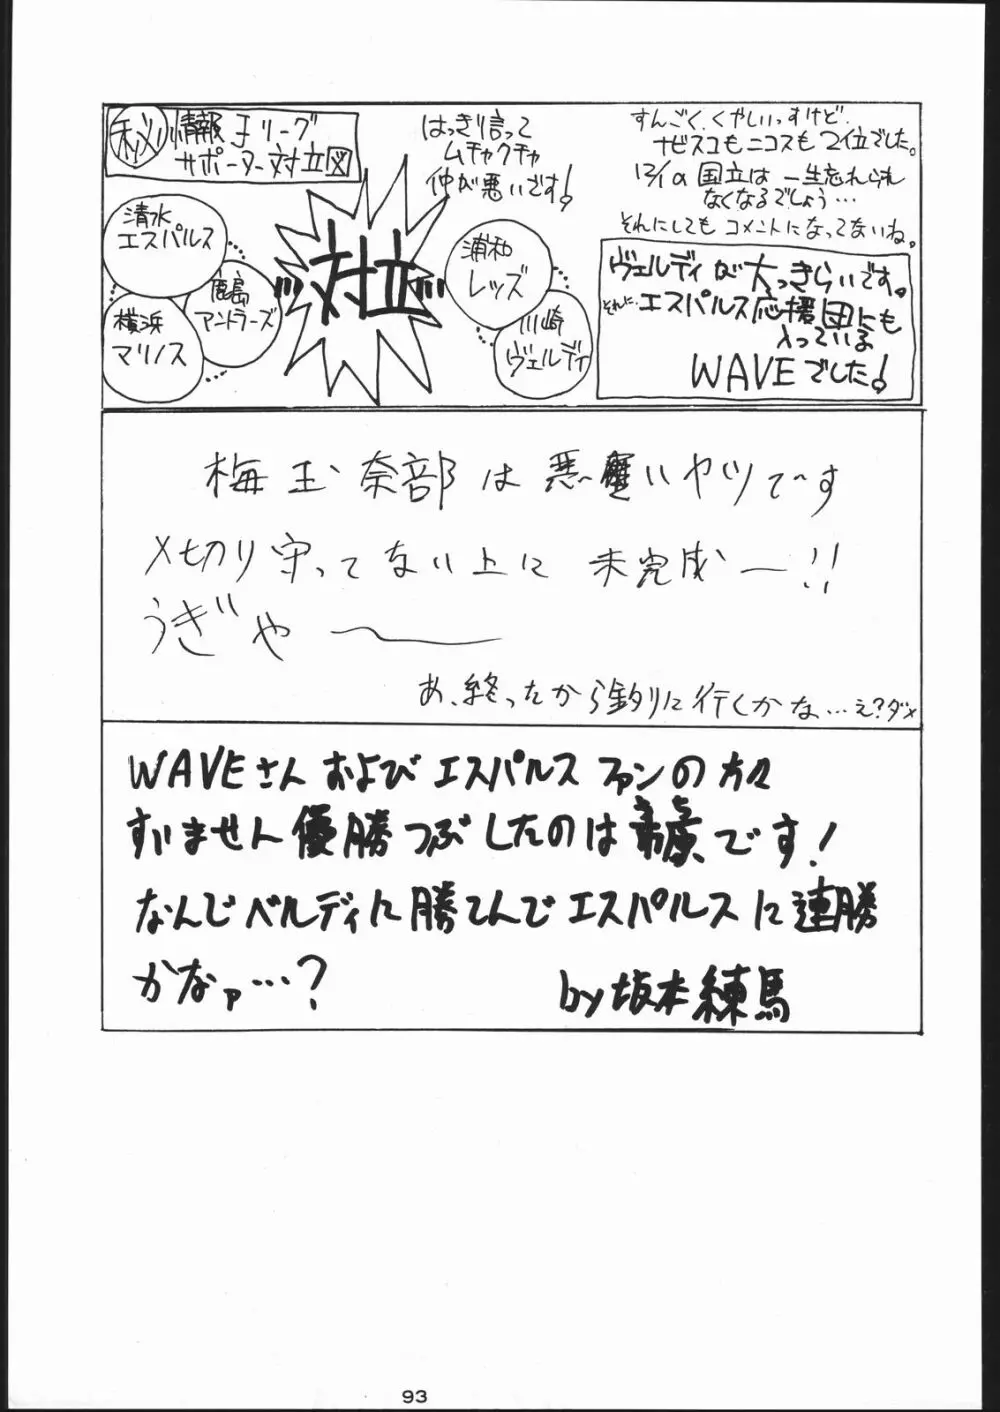 ㊙情報 Jリーグ
サポーター対立図
清水
エスパルス
鹿島
アントラーズ
横浜
マリノス
対立
はっきり言って
ムチャクチャ
仲が悪いです!
浦和
レッズ
川崎
ヴェルディ
すんごく、くやしいっすけど、
ナビスコもニコスも2位でした。
12/1の国立は一生忘れられ
なくなるでしょう…
それにしてもコメントになってないね。
ヴェルディが大っきらいです。
それに、エスパルス応援団にも
入っている
WAVEでした!
梅玉奈部は悪いヤツです
〆切り守ってない上に 未完成ー!!
うぎゃ〜
あ、終ったから釣りに行くかな…え?ダメ
WAVEさんおよびエスパルスファンの方々
すいません優勝つぶしたのはです!
なんじベルディに勝てんでエスパルスに連勝
かなァ…?
by坂本練馬
93